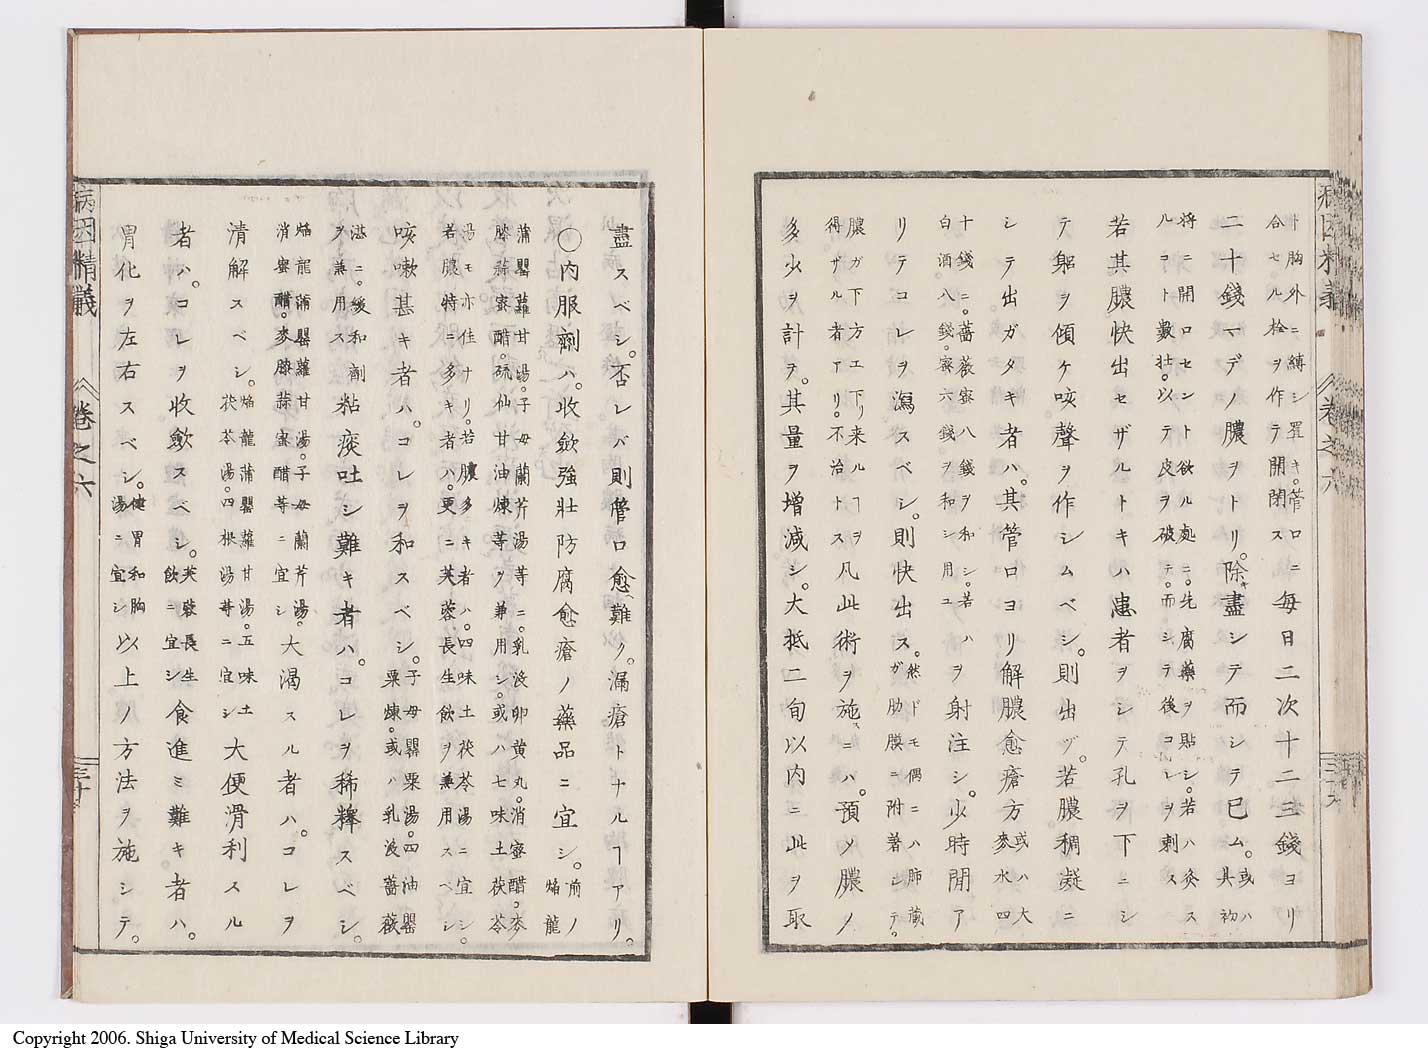 病因精義 卷之六
ト胸外ニ縛シ置キ。管口ニ
合セル栓ヲ作テ開閉ス
毎日二次十二三錢ヨリ
二十錢マデノ膿ヲトリ。除キ盡シテ而シテ已ム。
或ハ
具初
將ニ開口セント欲ル處ニ。先腐藥ヲ貼シ。若ハ灸ス
ルコト數壮。以テ皮ヲ破テ。而シテ後コレヲ刺ス
若其膿快出セザルトキハ患者ヲシテ孔ヲ下ニシ
テ躬ヲ傾ケ咳聲ヲ作シムベシ。則出ヅ。若膿稠凝ニ
シテ出ガタキ者ハ。其管口ヨリ解膿愈瘡方
或ハ大
麥水四
十錢ニ。薔薇蜜八錢ヲ和シ。若ハ
白酒八錢。蜜六錢ヲ和シ用ユ
ヲ射注シ。少時閉ア
リテコレヲ瀉スベシ。則快出ス。
然ドモ偶ニハ肺蔵
ガ肋膜ニ附著シテ。
膿ガ下方エ下リ来ルヿヲ
得ザル者アリ。不治トス
凡此術ヲ施スニハ。預メ膿ノ
多少ヲ計ヲ。其量ヲ増減シ。大抵二旬以内ニ此ヲ取
盡スベシ。否レバ則管口愈難ク。漏瘡トナルヿアリ。
〇内服劑ハ。收斂強壯防腐愈瘡ノ藥品ニ宜シ。
前ノ
焔龍
蒲罌蘿甘湯。子母蘭芹湯等ニ乳没卵黄丸。消蜜醋。麥
膝蒜蜜醋。硫仙甘油煉等ヲ兼用シ。或ハ七味土茯苓
湯モ亦佳ナリ。若膿多キ者ハ。四味土茯苓湯ニ宜シ。
若膿特ニ多キ者ハ。更ニ芙蓉長生飲ヲ兼用スベシ
咳嗽甚キ者ハ。コレヲ和スベシ。
子母罌粟湯。四油罌
粟煉。或ハ乳没薔薇
滋ニ。緩和劑
ヲ兼用ス
粘痰吐シ難キ者ハ。コレヲ稀釋スベシ。
焔龍蒲罌蘿甘湯。子母蘭芹湯。
消蜜醋。麥膝蒜蜜醋等ニ宜シ
大渇スル者ハ。コレヲ
清解スベシ。
焔龍蒲罌蘿甘湯。五味土
茯苓湯。四根湯等ニ宜シ
大便滑利スル
者ハ。コレヲ收斂スベシ。
芙蓉長生
飲ニ宜シ
食進ミ難キ者ハ。
胃化ヲ左右スベシ。
健胃和胸
湯ニ宜シ
以上ノ方法ヲ施シテ。
病因精義 卷之六 三十
Copyright 2006. Shiga University of Medical Science Library